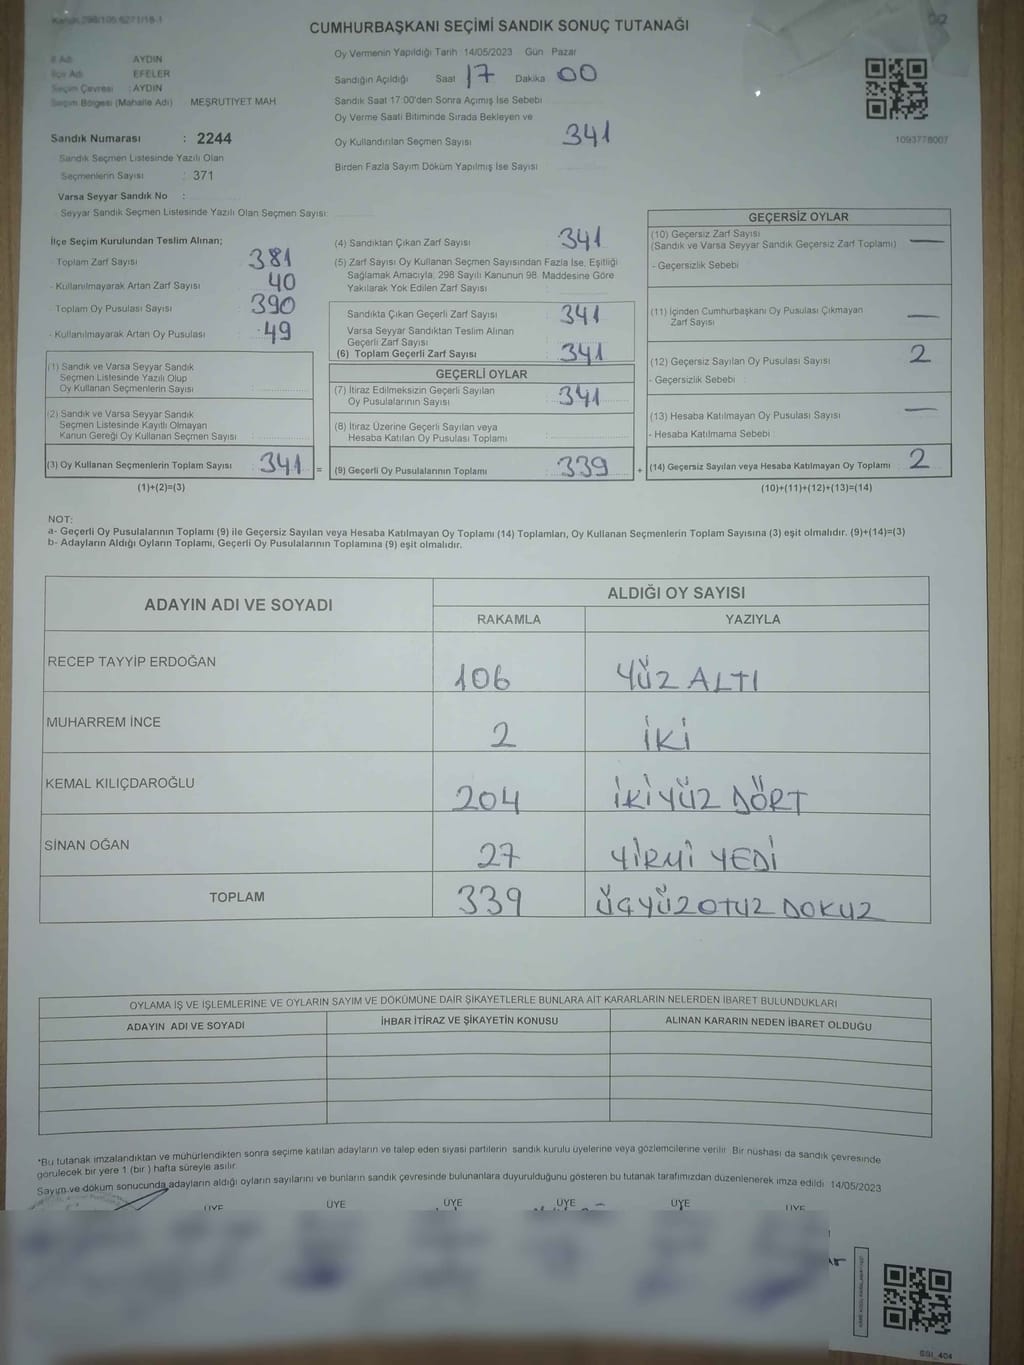 CUMHURBAŞKANI SEÇİMİ SANDIK SONUÇ TUTANAĞI
Oy Vermenin Yapıldığı Tarih 14/05/2023 Gün Pazar
İl Adı AYDIN
İlçe Adı EFELER
Seçim Çevresi : AYDIN
Seçim Bölgesi (Mahalle Adı) MEŞRUTİYET MAH
Sandık Numarası : 2244
Sandık Seçmen Listesinde Yazılı Olan
Seçmenlerin Sayısı : 371
Varsa Seyyar Sandık No :
Seyyar Sandık Seçmen Listesinde Yazılı Olan Seçmen Sayısı:
Sandığın Açıldığı Saat 17 Dakika 00
Sandık Saat 17:00'den Sonra Açımış İse Sebebi
Oy Verme Saati Bitiminde Sırada Bekleyen ve
Oy Kullandırılan Seçmen Sayısı 341
Birden Fazla Sayım Döküm Yapılmış İse Sayısı
1093778007
İlçe Seçim Kurulundan Teslim Alınan;
- Toplam Zarf Sayısı 381
- Kullanılmayarak Artan Zarf Sayısı 40
- Toplam Oy Pusulası Sayısı 390
- Kullanılmayarak Artan Oy Pusulası 49
(1) Sandık ve Varsa Seyyar Sandık
Seçmen Listesinde Yazılı Olup
Oy Kullanan Seçmenlerin Sayısı
(2) Sandık ve Varsa Seyyar Sandık
Seçmen Listesinde Kayıtlı Olmayan
Kanun Gereği Oy Kullanan Seçmen Sayısı
(3) Oy Kullanan Seçmenlerin Toplam Sayısı 341 =
(1)+(2)=(3)
(4) Sandıktan Çıkan Zarf Sayısı 341
(5) Zarf Sayısı Oy Kullanan Seçmen Sayısından Fazla İse, Eşitliği
Sağlamak Amacıyla, 298 Sayılı Kanunun 98. Maddesine Göre
Yakılarak Yok Edilen Zarf Sayısı
Sandıkta Çıkan Geçerli Zarf Sayısı 341
Varsa Seyyar Sandıktan Teslim Alınan
Geçerli Zarf Sayısı
(6) Toplam Geçerli Zarf Sayısı 341
GEÇERLİ OYLAR
(7) İtiraz Edilmeksizin Geçerli Sayılan
Oy Pusulalarının Sayısı 341
(8) İtiraz Üzerine Geçerli Sayılan veya
Hesaba Katılan Oy Pusulası Toplamı
(9) Geçerli Oy Pusulalarının Toplamı 339 +
GEÇERSİZ OYLAR
(10) Geçersiz Zarf Sayısı —
(Sandık ve Varsa Seyyar Sandık Geçersiz Zarf Toplamı)
- Geçersizlik Sebebi
(11) İçinden Cumhurbaşkanı Oy Pusulası Çıkmayan
Zarf Sayısı —
(12) Geçersiz Sayılan Oy Pusulası Sayısı 2
- Geçersizlik Sebebi
(13) Hesaba Katılmayan Oy Pusulası Sayısı —
- Hesaba Katılmama Sebebi
(14) Geçersiz Sayılan veya Hesaba Katılmayan Oy Toplamı 2
(10)+(11)+(12)+(13)=(14)
NOT:
a- Geçerli Oy Pusulalarının Toplamı (9) ile Geçersiz Sayılan veya Hesaba Katılmayan Oy Toplamı (14) Toplamları, Oy Kullanan Seçmenlerin Toplam Sayısına (3) eşit olmalıdır. (9)+(14)=(3)
b- Adayların Aldığı Oyların Toplamı, Geçerli Oy Pusulalarının Toplamına (9) eşit olmalıdır.
ADAYIN ADI VE SOYADI
ALDIĞI OY SAYISI
RAKAMLA YAZIYLA
RECEP TAYYİP ERDOĞAN 106 YÜZ ALTI
MUHARREM İNCE 2 İKİ
KEMAL KILIÇDAROĞLU 204 İKİYÜZ DÖRT
SİNAN OĞAN 27 YİRMİ YEDİ
TOPLAM 339 ÜÇYÜZOTUZ DOKUZ
OYLAMA İŞ VE İŞLEMLERİNE VE OYLARIN SAYIM VE DÖKÜMÜNE DAİR ŞİKAYETLERLE BUNLARA AİT KARARLARIN NELERDEN İBARET BULUNDUKLARI
ADAYIN ADI VE SOYADI İHBAR İTİRAZ VE ŞİKAYETİN KONUSU ALINAN KARARIN NEDEN İBARET OLDUĞU
*Bu tutanak imzalandıktan ve mühürlendikten sonra seçime katılan adayların ve talep eden siyasi partilerin sandık kurulu üyelerine veya gözlemcilerine verilir. Bir nüshası da sandık çevresinde
görülecek bir yere 1 (bir ) hafta süreyle asılır.
Sayım ve döküm sonucunda adayların aldığı oyların sayılarını ve bunların sandık çevresinde bulunanlara duyurulduğunu gösteren bu tutanak tarafımızdan düzenlenerek imza edildi. 14/05/2023
ÜYE ÜYE ÜYE ÜYE ÜYE ÜYE